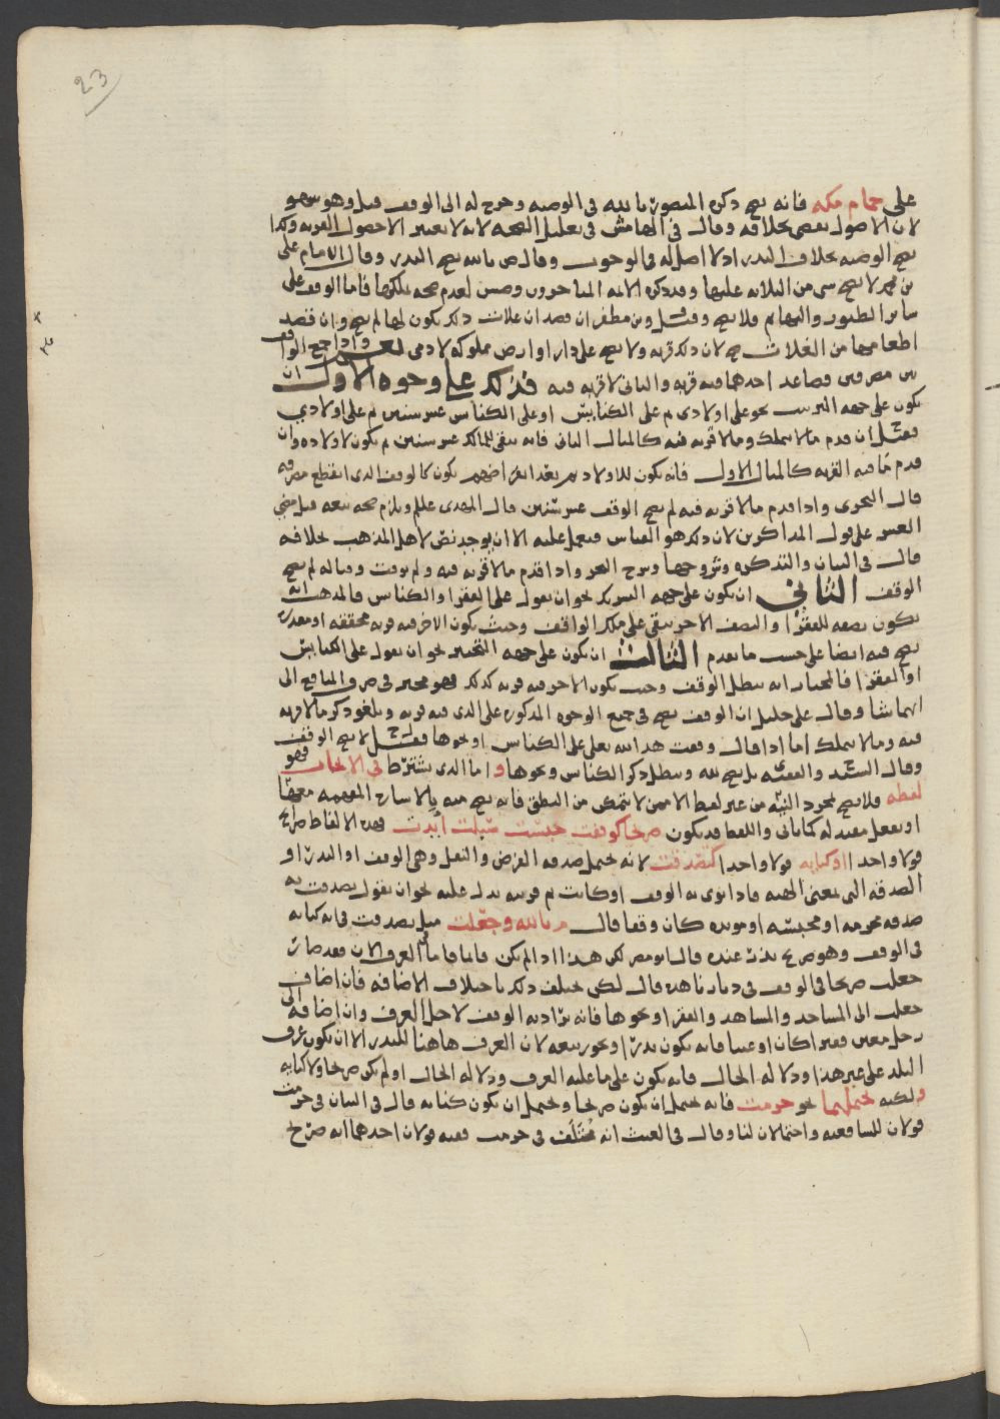 23
على حمام مكه فانه يصح ذكره المنصور بالله في الوصيه وخرج له الى الوقف قيل وهو سهو
لان الاصول تقضي بخلافه وقال في الهامش في تعليل الصحه لانه لا يعتبر الا حصول القربه وكذا
يصح الوصيه بخلاف النذر اذ لا اصل له في الوجوب وقال ص بالله يصح النذر وقال الامام على
بن محمد لا يصح شي من الثلاثه عليها وقد ذكره الائمه المتاخرون لعدم صحه تملكها فاما الوقف على
ساير الطيور والبهايم فلا يصح وقيل بن مظفر ان قصد ان غلات ذلك يكون لها لم يصح وان قصد
اطعامها من الغلات صح لان ذلك قربه ولا يصح على دار او ارض مملوكه لادمي نعم واذا جمع الواقف
بين مصرفين فصاعدا احدهما فيه قربه والثاني لا قربه فيه فذلك على وجوه الاول ان
يكون على جهه الترتيب نحو على اولادي ثم على الكنايس او على الكنايس عشر سنين ثم على اولادي
فقيل ان قدم ما لا يملك وما لا قربه فيه كالمثال الثاني فانه يبقى للمالك عشر سنين ثم يكون لاولاده وان
قدم ما فيه القربه كالمثال الاول فانه يكون للاولاد ثم بعد انقراضهم يكون كالوقف الذي انقطع مصرفه
قال البحري واذا قدم ما لا قربه فيه لم يصح الوقف عشر سنين قال المهدي علم ويلزم صحه بيعه قبل مضي
العشر على قول المذاكرين لان ذلك هو القياس فيعمل عليه الا ان يوجد نص لاهل المذهب بخلافه
قال في البيان والتذكره وشروحها وشرح البحر واذا قدم ما لا قربه فيه ولم يوقت وقبا له لم يصح
الوقف الثاني ان يكون على جهه التشريك نحو ان يقول على الفقرا والكنايس فالمذهب انه
يكون نصفه للفقرا والنصف الاخر يبقى على ملك الواقف وحيث يكون الاخر فيه قربه محققه او مقدره
يصح فيه ايضا على حسب ما تقدم الثالث ان يكون على جهه التخيير نحو ان يقول على الكنايس
او الفقرا فالمختار انه يبطل الوقف وحيث يكون الاخر فيه قربه كذلك فهو مخير في صرف المنافع الى
ايهما شا وقال على خليل ان الوقف يصح في جميع الوجوه المذكوره على الذي فيه قربه ويلغو ذكر ما لا قربه
فيه وما لا يملك اما اذا قال وقفت هذا لله تعلى على الكنايس او نحوها فقيل لا يصح الوقف
وقال السيد والفقيه بل يصح لله ويبطل ذكر الكنايس ونحوها واما الذي يشترط في الايجاب فهو
لفظه فلا يصح بمجرد النيه من غير لفظ الا ممن لا يتمكن من النطق فانه يصح منه بالاشاره المفهمه
او بفعل مفيد له كما ياتي واللفظ قد يكون صريحا كوقفت حبست سبلت ابدت فهذه الالفاظ صرايح
قولا واحدا او كنايه قولا واحدا كتصدقت لانه يحتمل صدقه الفرض والنفل وهي الوقف او النذر او
الصدقه التي بمعنى الهبه فاذا نوى به الوقف او كانت ثم قرينه تدل عليه نحو ان يقول تصدقت به
صدقه محرمه او محبسه او موبده كان وقفا قال م بالله وجعلت مثل تصدقت في انه كنايه
في الوقف وهو صريح نذر عنده قال ابو مضر لكن هذا اذا لم يكن فاما العرف الان فقد صار
جعلت صريحا في الوقف في ديارنا هذه قال لكن يختلف ذلك باختلاف الاضافه فان اضاف
جعلت الى المساجد والمشاهد والفقرا او نحوها فانه يراد به الوقف لاجل العرف وان اضافه الى
رجل معين فقيرا كان او غنيا فانه يكون نذرا ويجوز بيعه لان العرف هاهنا للنذر الا ان يكون عرف
البلد على غير هذا ودلاله الحال فانه يكون على ما عليه العرف ودلاله الحال او لم يكن صريحا ولا كنايه
ولكنه يحتملهما نحو حرمت فانه يحتمل ان يكون صريحا ويحتمل ان يكون كنايه قال في البيان في حرمت
قولان للشافعيه واحتمالان لنا وقال في الغيث انه مختلف في حرمت ففيه قولان احدهما انه صريح